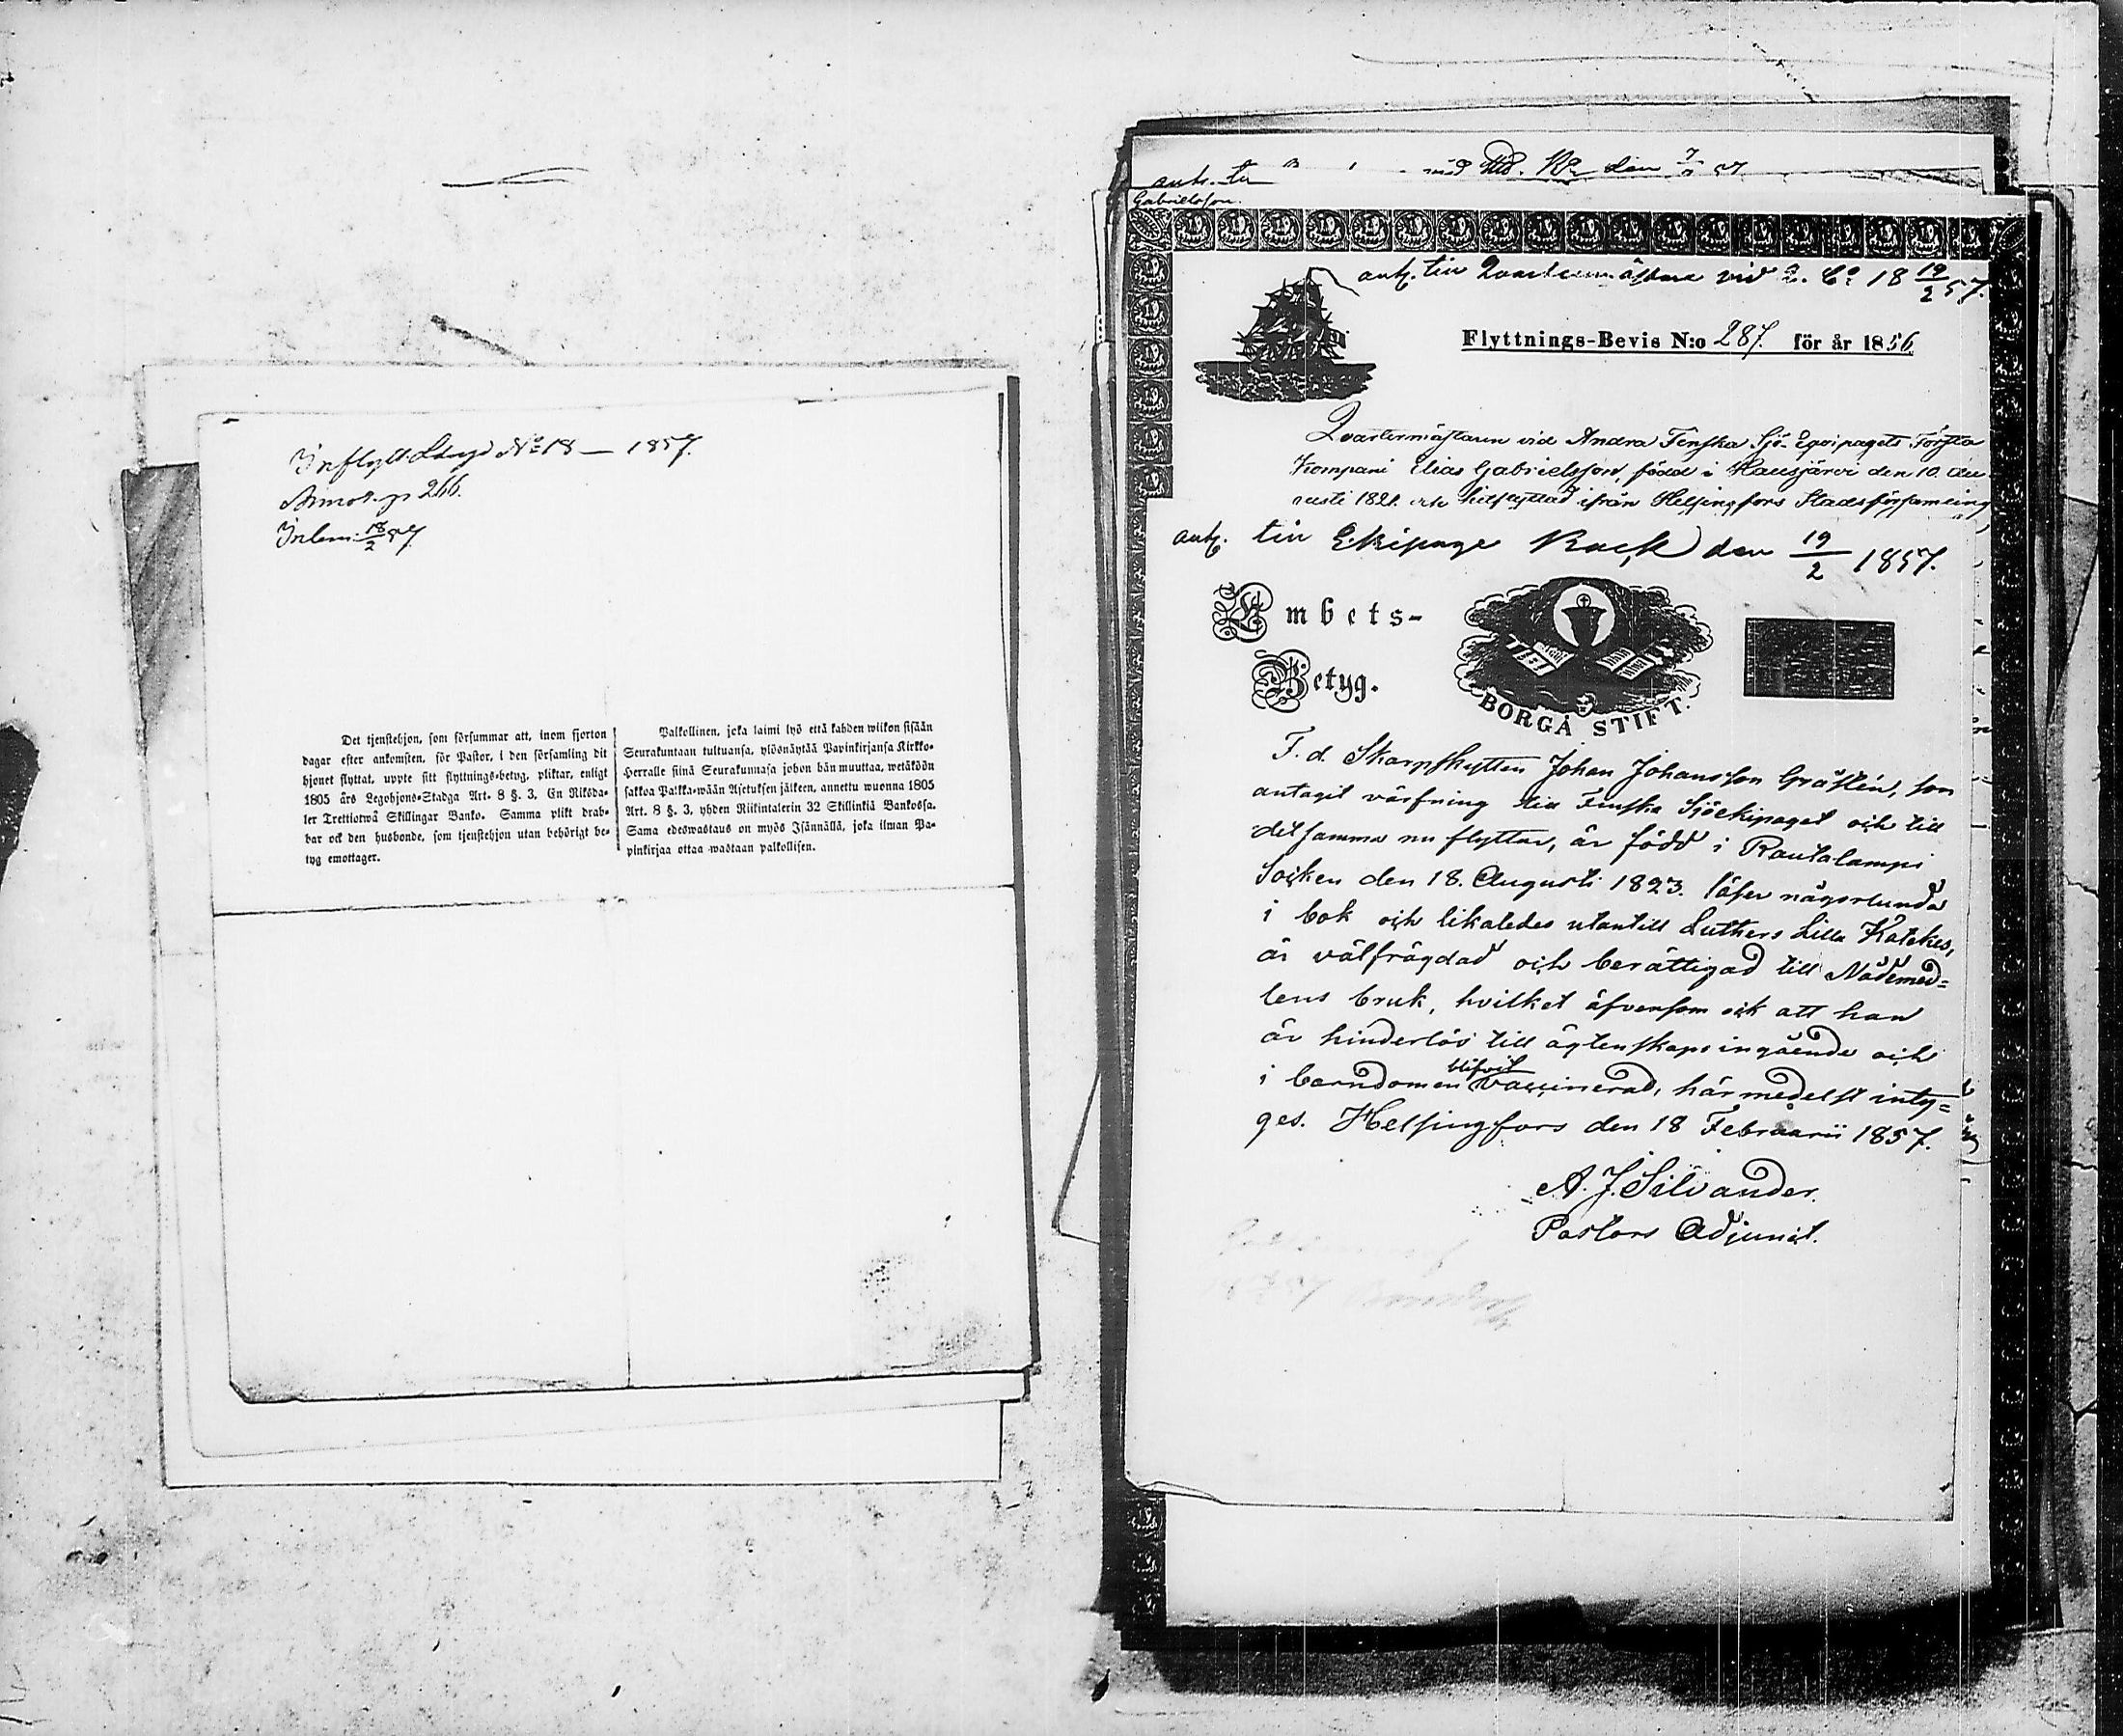 Inflytt. Längd No 18 — 1857.
p 266.
Inlem. 18/2 57.
Det tjenstehjon, som försummar att, inom fjorton
dagar efter ankomsten, för Pastor, i den församling dit
hjonet flyttat, uppte sitt flyttnings-betyg, pliktar, enligt
1805 års Legohjons-Stadga Art. 8 §. 3. En Riksda-
ler Trettiotwå Skillingar Banko. Samma plikt drab-
bar ock den husbonde, som tjenstehjon utan behörigt be-
tyg emottager.
Palkollinen, joka laimi lyö että kahden wiikon sisään
Seurakuntaan tultuansa, ylösnäytää Papinkirjansa Kirkko-
Herralle siinä Seurakunnasa johon hän muuttaa, wetäköön
sakkoa Palkka-wään Asetuksen jälkeen, annettu wuonna 1805
Art. 8 §. 3. yhden Riikintalerin 32 Skillinkiä Bankossa.
Sama edeswastaus on myös Isännällä, joka ilman Pa-
pinkirjaa ottaa wastaan palkollisen.
den
Gabrielsson.
ant. till Quartermästare vid 2. Co 18 19/2 57.
Flyttnings-Bevis N:o 287. för år 1856.
Quartermästaren vid Andra Finska Sjö-Eqvipagets Första
Kompani Elias Gabrielsson, född i Hausjärvi den 10. Au-
gusti 1821. och hitflyttad ifrån Helsingfors Stadsförsamling
ant. till Ekipage den 19/2 1857.
Embets-
Betyg.
BORGÅ STIFT.
F. d. Skarpskytten Johan Johansson Gråstén, som
antagit värfning till Finska Sjöekipaget och till
detsamma nu flyttar, är född i Rautalampi
Socken den 18. Augusti 1823. läser någorlunda
i bok och likaledes utantill Luthers Lilla Katekes,
är välfrägdad och berättigad till Nådemed=
lens bruk, hvilket äfvensom ock att han
är hinderlös till ägtenskaps ingående och
i barndomen blifvit vaccinerad, härmedelst inty=
ges. Helsingfors den 18 Februarii 1857.
A. J. Silvander.
Pastors Adjunct.